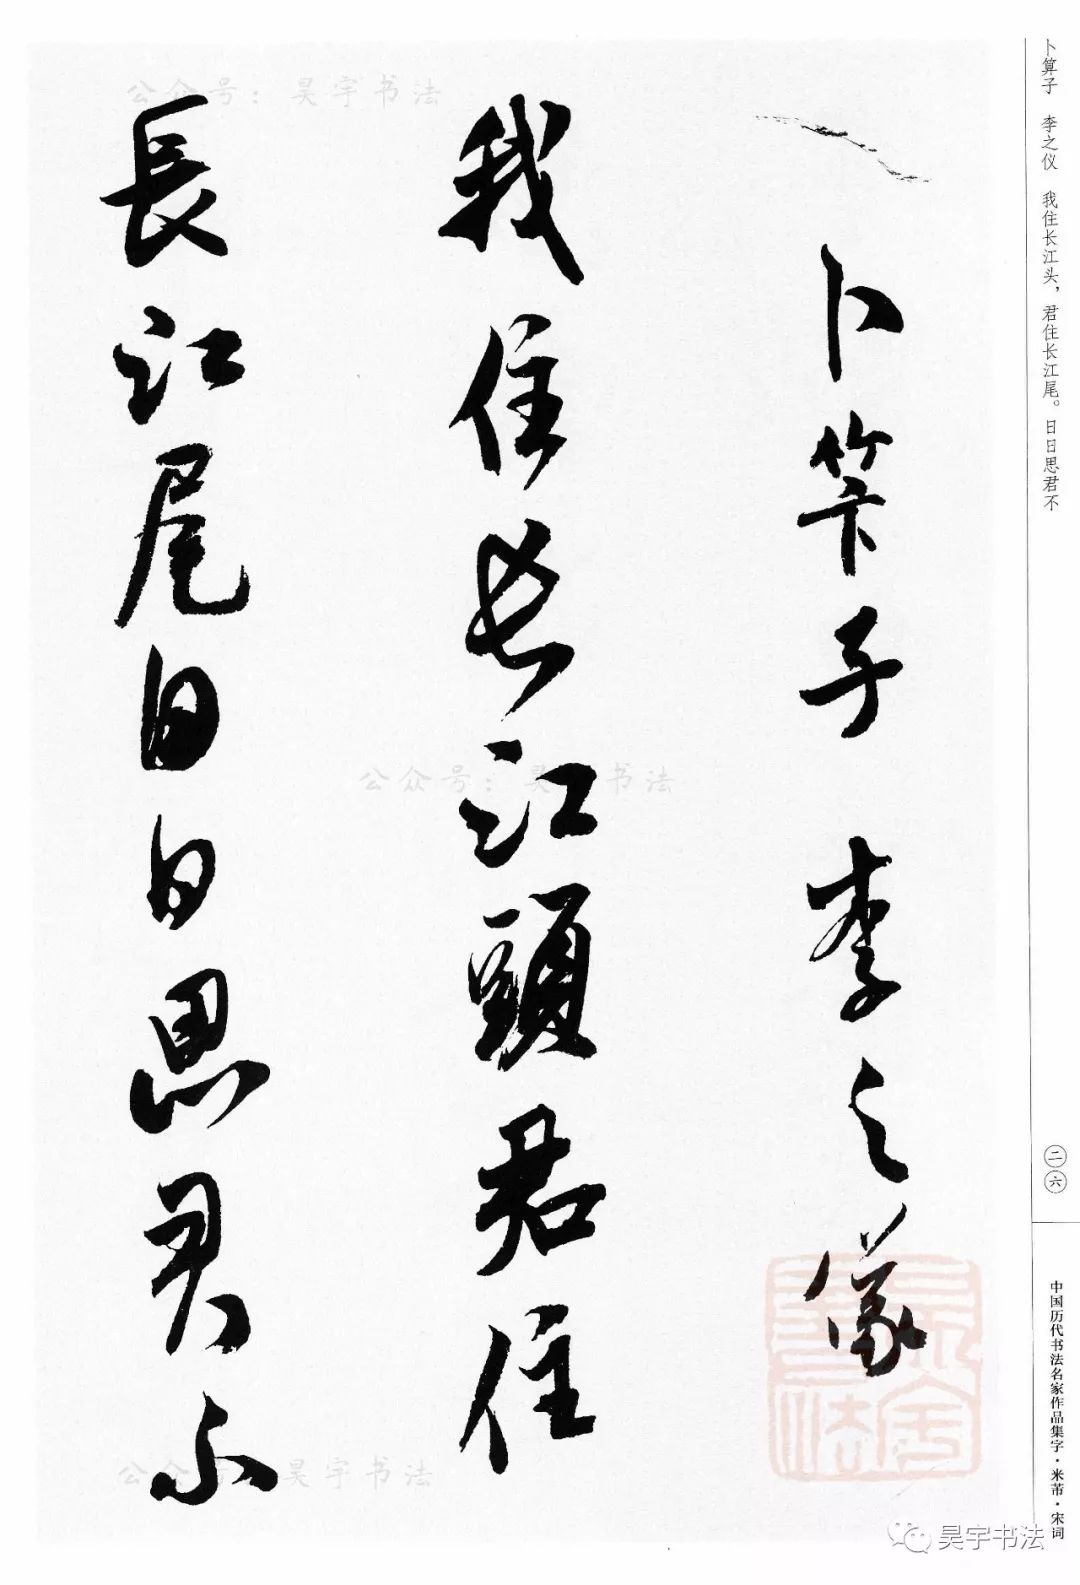 卜算子　李之仪　我住长江头，君住长江尾。日日思君不
二六
中国历代书法名家作品集字·米芾·宋词
卜筭子　李之儀
我住長江頭君住
長江尾日日思君不
公众号：昊宇书法
公众号：昊宇书法
公众号：昊宇书法
昊宇书法